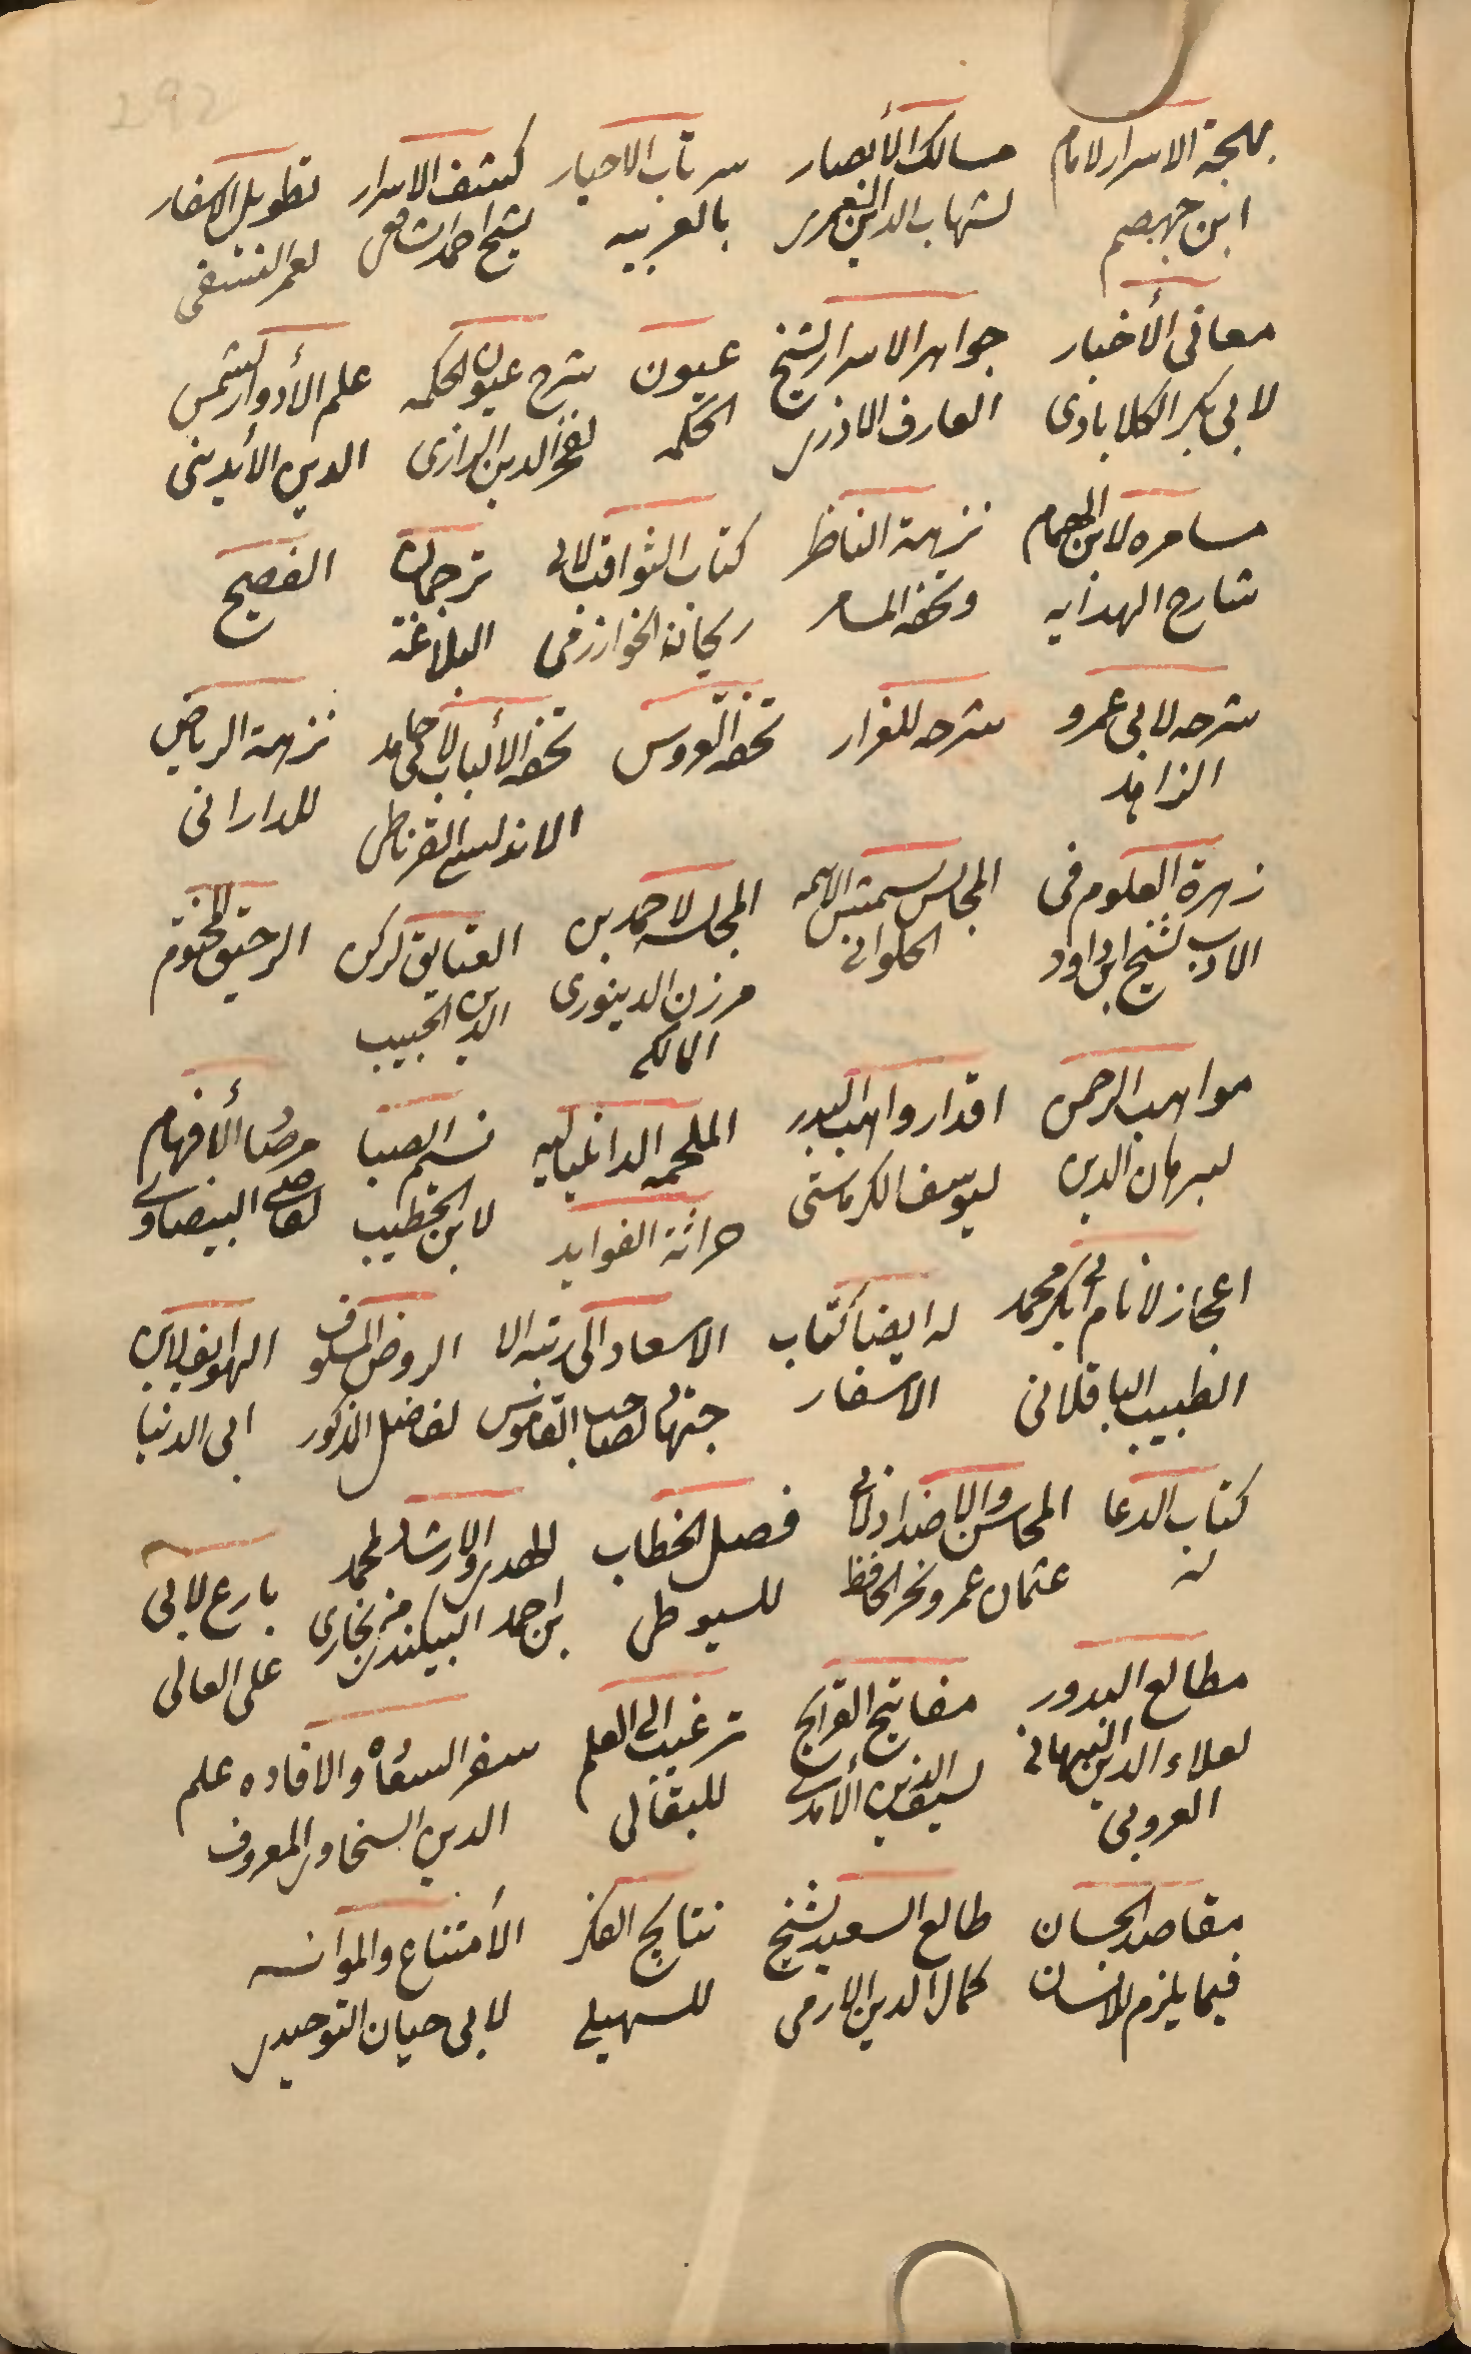 بهجة الاسرار لامام
ابن جهضم
مسالك الأبصار
لشهاب الدين العمرى
سرتاب الاحبار
بالعربيه
كشف الاسرار
لشيخ احمد الشافعى
تطويل الاسفار
لعمر النسفى
معانى الأخبار
لابى بكر الكلابادى
جواهر الاسرار لشيخ
العارف الاذرى
عيون
الحكمه
شرح عيون الحكمه
لفخر الدين الرازى
علم الأدوار لشمس
الدين الأيدينى
مسامره لابن الهمام
شارح الهدايه
نزهة الناظر
وتحفه المسامر
كتاب الثواقب لابى
ريحانه الخوارزمى
ترجمان
البلاغة
الفصيح
شرحه لابى عمرو
الزاهد
شرحه للفرار
تحفه العروس
تحفه الألباب لابى حامد
الاندلسى الغرناطى
نزهة الرياض
للدارانى
زهرة العلوم فى
الادب لشيخ ابى داود
المجالس لشمس الائمه
الحلوانى
المجالسه لاحمد بن
مرزن الدينورى
المالكى
العتايق لركن
الدين الحبيب
الرحيق المختوم
مواهب الرحمن
لبرهان الدين
اقدار واهب البدر
ليوسف الكرماستى
الملحمه الدانياليه
حراثة الفوايد
نسيم الصبا
لابن الخطيب
مرصاد الأفهام
لقاضى البيضاوى
اعجاز لامام ابى بكر محمد
الطبيب الباقلانى
له ايضا كتاب
الاسفار
الاسعاد الى رتبه الا
جتهاد لصاحب القاموس
الروض المسلوف
لفاضل المذكور
الهواتف لابن
ابى الدنيا
كتاب الدعا
له
المحاسن والاضداد لابى
عثمان عمرو بحر الحافظ
فصل الخطاب
للسيوطى
الهدى والارشاد لمحمد
بن احمد البيكندى من بخارى
بارع لابى
على العالى
مطالع البدور
لعلاء الدين البهائى
العروبى
مفاتيح القرايح
لسيف الدين الأمدى
ترغيب الى العلم
للبقالى
سفر السعاده والافاده علم
الدين السخاوى المعروف
مقاصد الحسان
فيما يلزم للانسان
طالع السعيد لشيخ
كمال الدين الارمى
نتايج الفكر
للسهيلى
الأمتناع والموانسه
لابى حيان التوحيدى